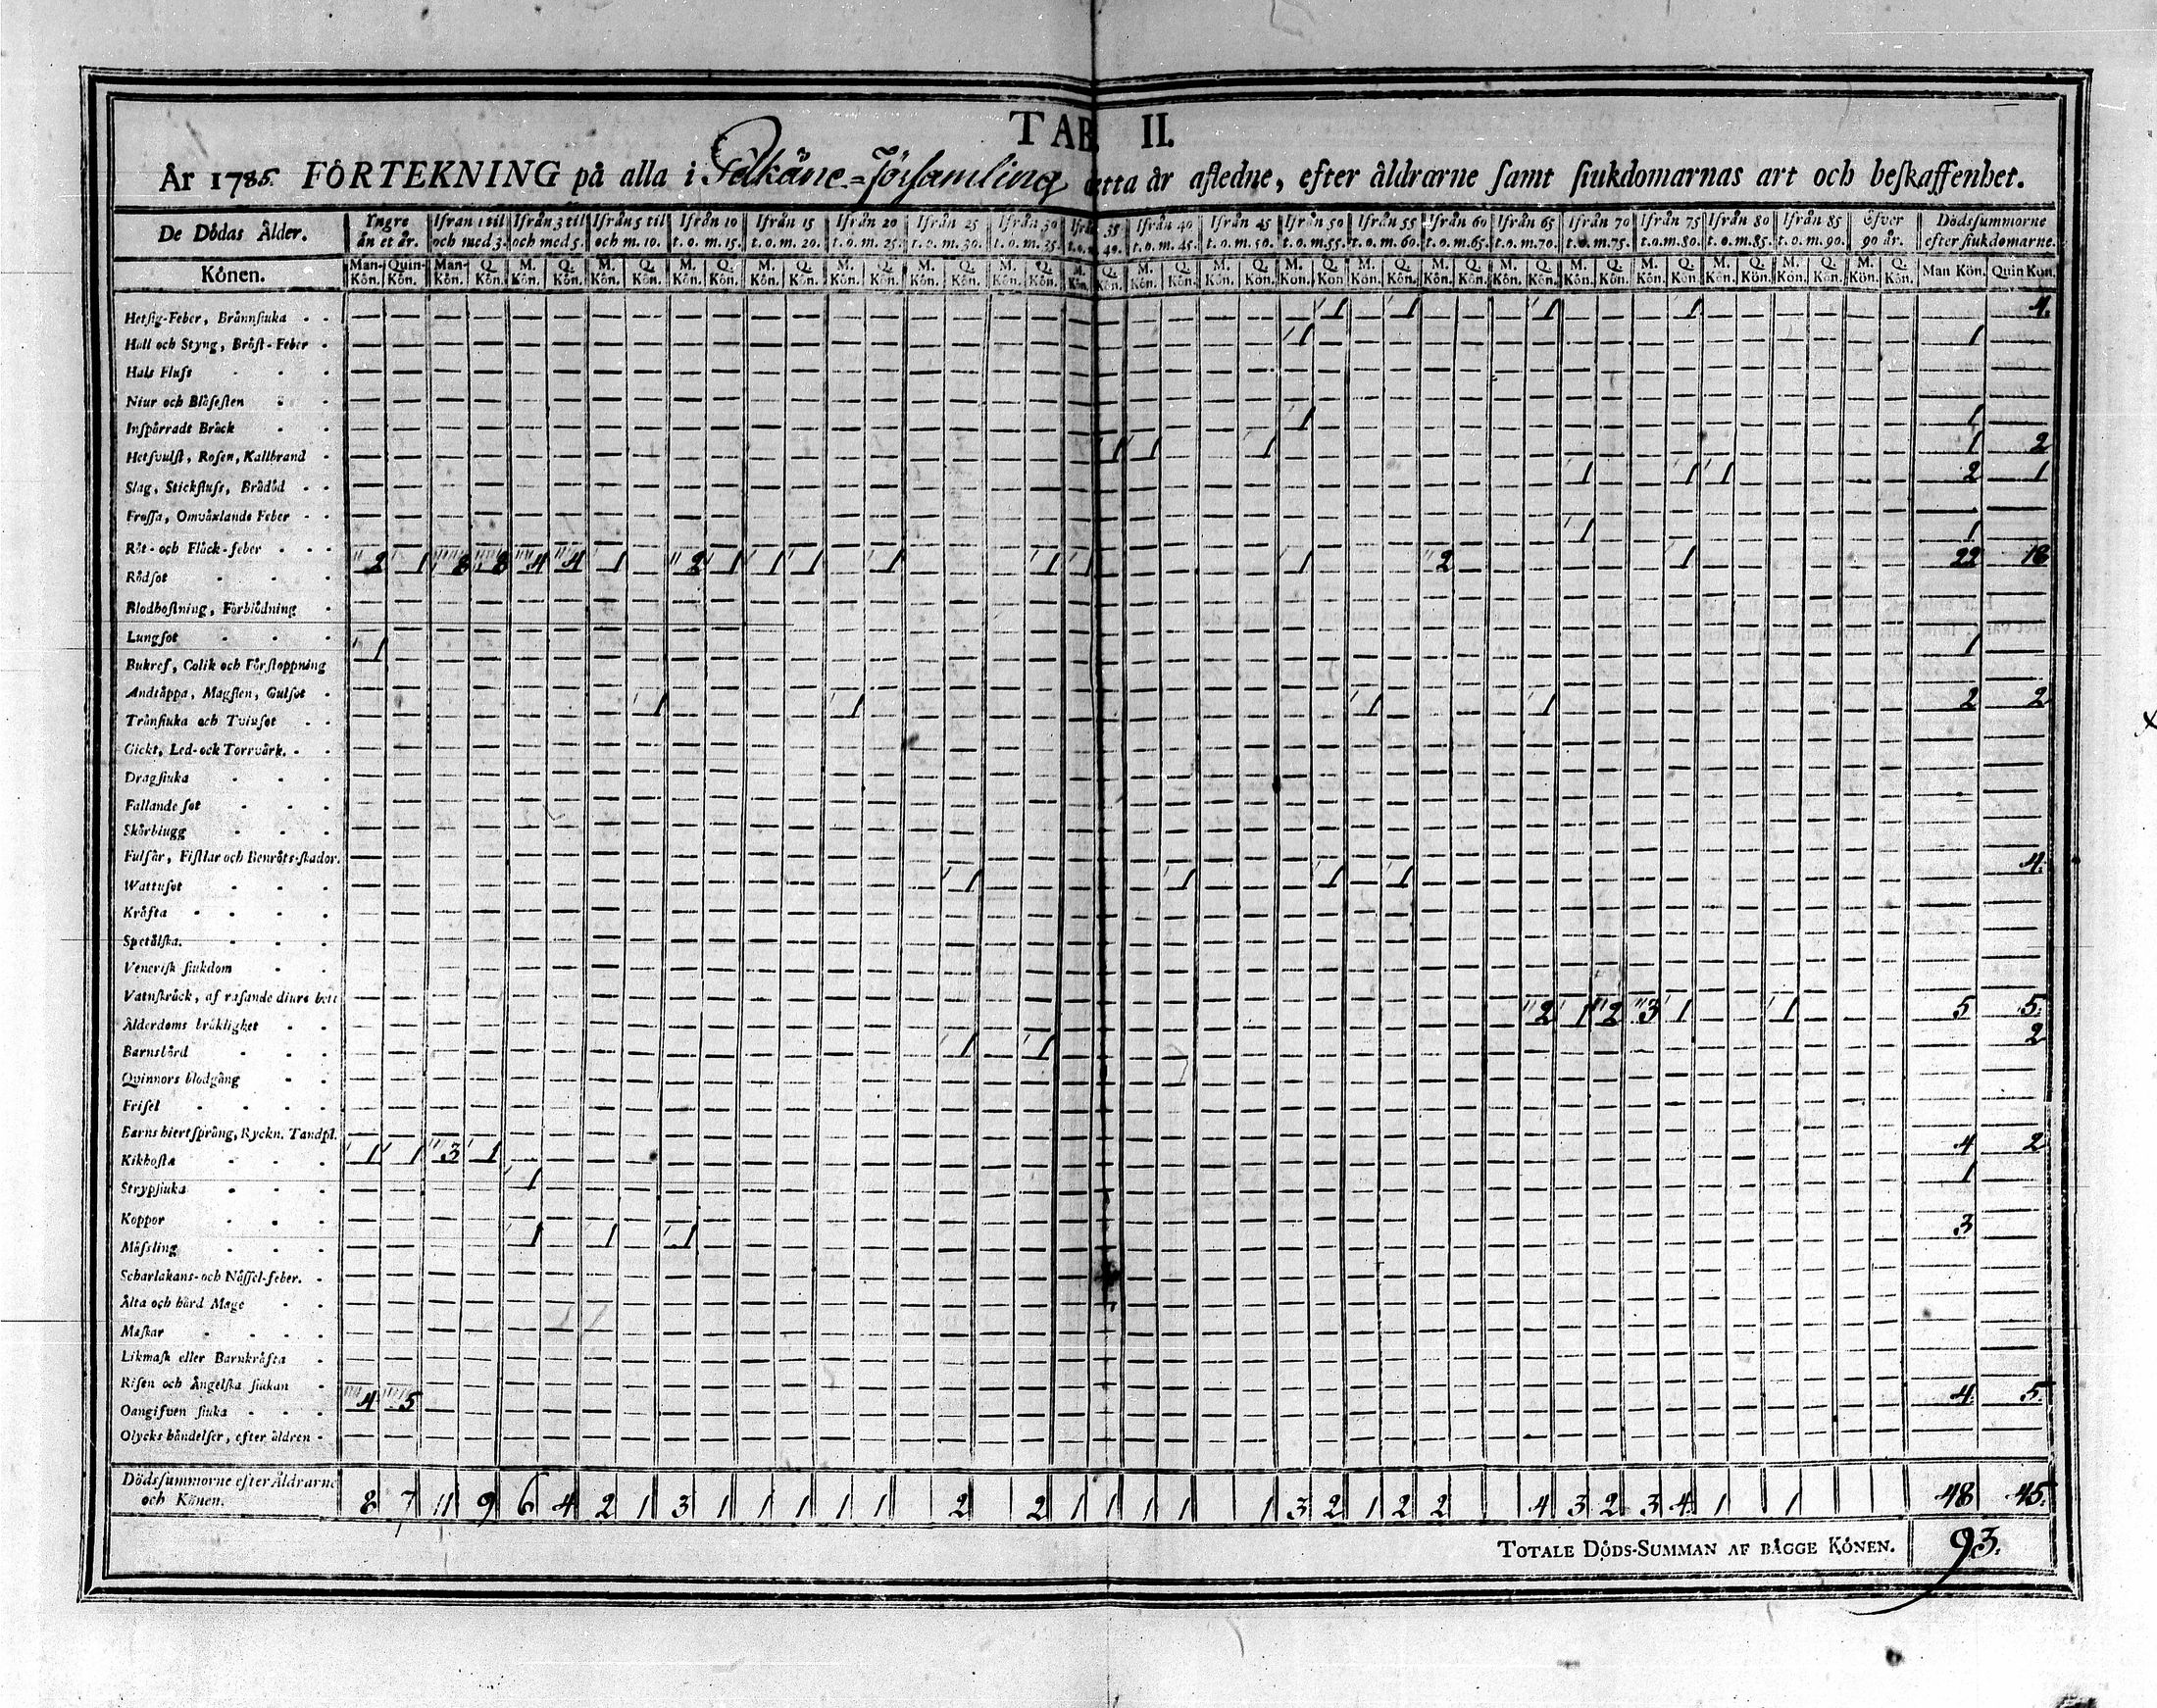 TAB II.
År 1785. FÖRTEKNING på alla i Pelkäne-Församling detta år afledne, efter åldrarne samt siukdomarnas art och beskaffenhet.
De Dödas Ålder. Yngre än et år. Ifrån 1 til och med 3. Ifrån 3 til och med 5. Ifrån 5 til och m. 10. Ifrån 10 t. o. m. 15. Ifrån 15 t. o. m. 20. Ifrån 20 t. o. m. 25. Ifrån 25 t. o. m. 30. Ifrån 30 t. o. m. 35. Ifrån 35 t. o. 40. Ifrån 40 t. o. m. 45. Ifrån 45 t. o. m. 50. Ifrån 50 t. o. m. 55. Ifrån 55 t. o. m. 60. Ifrån 60 t. o. m. 65. Ifrån 65 t. o. m. 70. Ifrån 70 t. o. m. 75. Ifrån 75 t. o. m. 80. Ifrån 80 t. o. m. 85. Ifrån 85 t. o. m. 90. Öfver 90 år. Dödssummorne efter siukdomarne.
Könen. Man-Kön. Quin-Kön. Man-Kön. Q. Kön. M. Kön. Q. Kön. M. Kön. Q. Kön. M. Kön. Q. Kön. M. Kön. Q. Kön. M. Kön. Q. Kön. M. Kön. Q. Kön. M. Kön. Q. Kön. M. Kön. Q. Kön. M. Kön. Q. Kön. M. Kön. Q. Kön. M. Kön. Q. Kön. M. Kön. Q. Kön. M. Kön. Q. Kön. M. Kön. Q. Kön. M. Kön. Q. Kön. M. Kön. Q. Kön. M. Kön. Q. Kön. M. Kön. Q. Kön. M. Kön. Q. Kön. Man Kön. Quin Kön.
Hetsig-Feber, Brännsiuka 1 1 1 1 4.
Håll och Styng, Bröst-Feber 1 1
Hals Fluss
Niur och Blåsesten
Inspärradt Bråck 1 1
Hetsvulst, Rosen, Kallbrand 1 1 1 1 2
Slag, Stickfluss, Brådöd 1 1 1 2 1
Frossa, Omväxlande Feber
Röt- och Fläck-feber 1 1
Rödsot 2 1 8 8 4 4 1 2 1 1 1 1 1 1 1 2 1 22 18
Blodhostning, Förblödning
Lungsot
Bukref, Colik och Förstoppning 1 1
Andtäppa, Magsten, Gulsot
Trånsiuka och Tvinsot 1 1 1 1 2 2
Gickt, Led- ock Torrvärk.
Dragsiuka
Fallande sot
Skörbiugg
Fulsår, Fistlar och Benröts-skador.
Wattusot 1 1 1 1 4.
Kräfta
Spetälska.
Venerisk siukdom
Vatuskräck, af rasande diurs bett
Ålderdoms bräklighet 2 1 2 3 1 1 5 5.
Barnsbörd 1 1 2
Qvinnors blodgång
Frisel
Barns hiertsprång, Ryckn. Tandpl.
Kikhosta 1 1 3 1 4 2
Strypsiuka 1 1
Koppor
Mässling 1 1 1 3
Scharlakans- och Nässel-feber.
Älta och hård Mage
Maskar
Likmask eller Barnkräfta
Risen och Ängelska siukan
Oangifven siuka 4 5 4. 5.
Olycks händelser, efter åldren
Dödssummorne efter Åldrarne och Könen. 8 7 11 9 6 4 2 1 3 1 1 1 1 1 2 2 1 1 1 1 1 3 2 1 2 2 4 3 2 3 4 1 1 48 45.
TOTALE DÖDS-SUMMAN AF BÄGGE KÖNEN. 93.